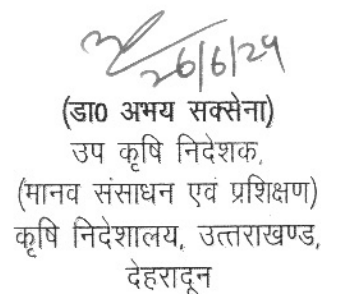 26/6/24
(डा० अभय सक्सेना)
उप कृषि निदेशक,
(मानव संसाधन एवं प्रशिक्षण)
कृषि निदेशालय, उत्तराखण्ड,
देहरादून